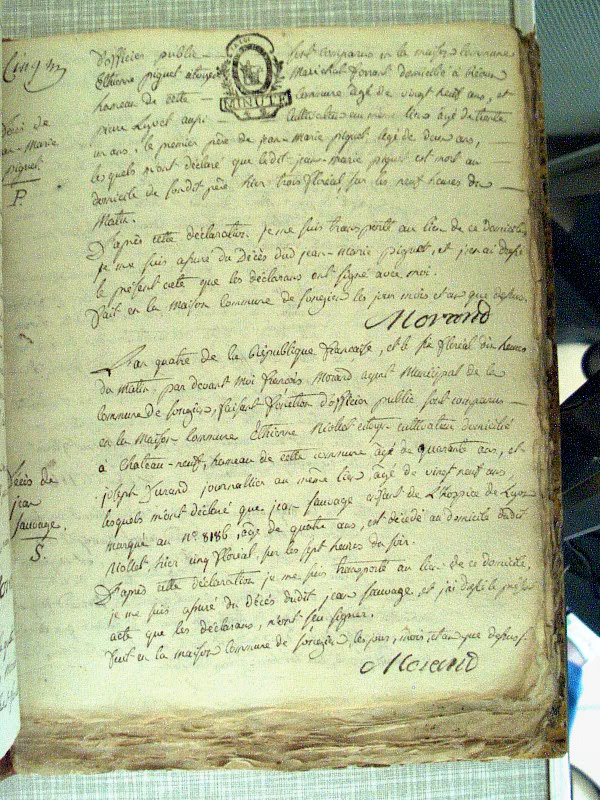 d'officier public sont comparus en la maison commune
Etienne piguet citoyen Marechal ferrant domicilié à
hameau de cette commune âgé de vingt neuf ans, et
pierre aussi cultivateur au même lieu âgé de trente
MINUTE
un ans, le premier père de jean-Marie piguet âgé de deux ans,
lesquels m'ont déclaré que ledit jean-marie piguet est mort au
domicile de sondit père hier trois floréal sur les neuf heures du
Matin.
D'après cette déclaration je me suis transporté au lieu de ce domicile,
je me suis assuré du Décès dud. jean-Marie piguet, et j'en ai dressé
le présent acte que les déclarans ont signé avec moi.
fait en la maison commune de songieu les jour mois et an que dessus.
Morand
Décès de
jean-Marie
piguet
P.
L'an quatre de la République française, et le six floréal dix heures
du matin par devant Moi françois Morand agent Municipal de la
commune de songieu, faisant fonction d'officier public sont comparus
en la Maison commune Etienne Niollet citoyen cultivateur domicilié
a Chateau-neuf, hameau de cette commune âgé de quarante ans, et
joseph Jurand journallier au même lieu âgé de vingt neuf ans,
lesquels m'ont déclaré que jean sauvage enfant de L'hospice de Lyon
marqué au n.° 8186, âgé de quatre ans, est décédé au domicile dudit
Niollet hier cinq floréal, sur les sept heures du soir.
D'après cette déclaration je me suis transporté au lieu de ce domicile,
je me suis assuré du Décès dudit jean sauvage, et j'ai dressé le présent
acte que les déclarans, n'ont sçu signer.
fait en la maison commune de songieu, les jour, mois, et an que dessus.
Morand
Décès de
jean
sauvage.
S.